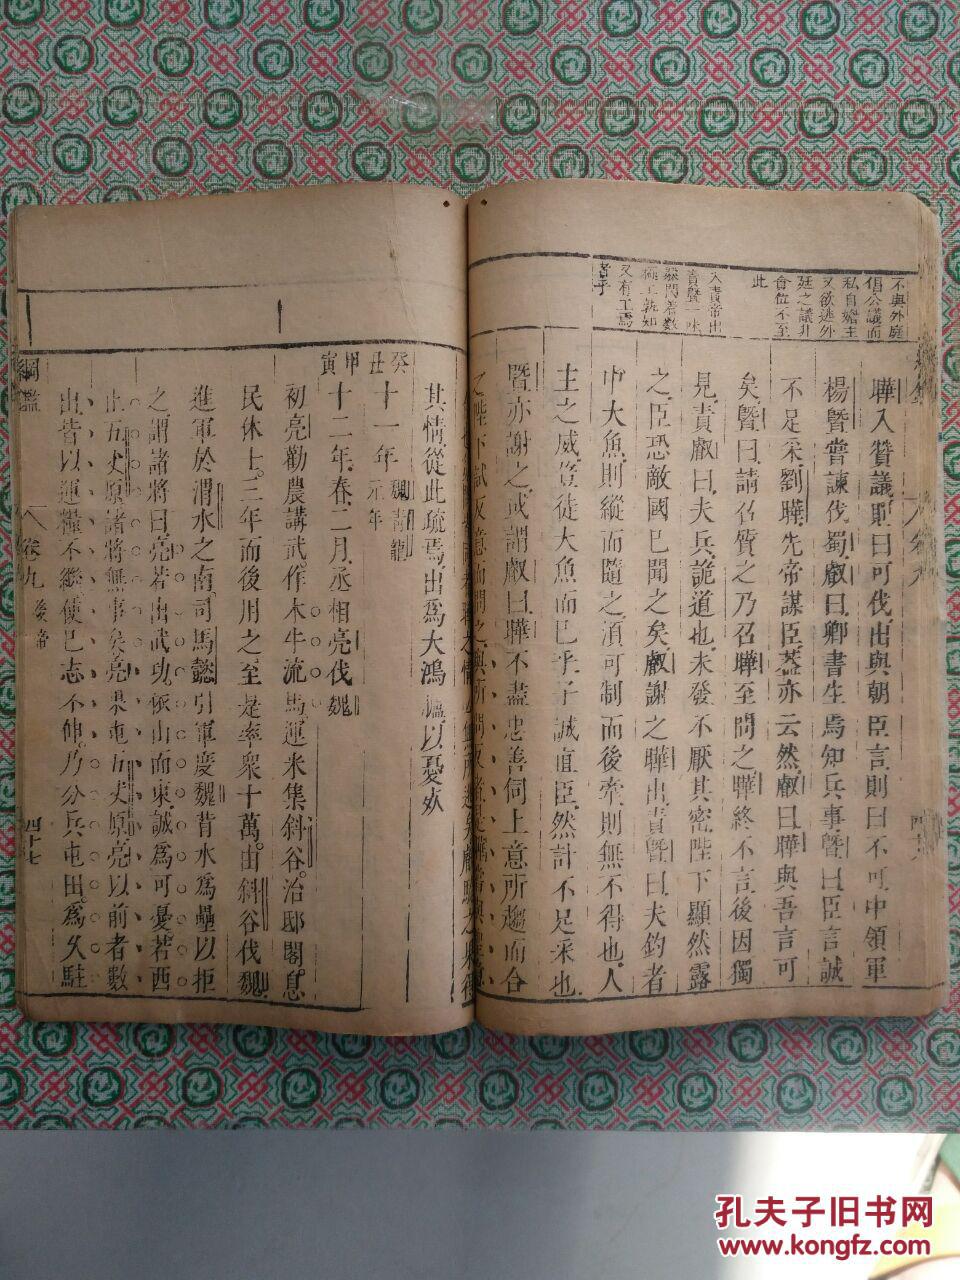 不與外庭
倡公議而
私自媮主
又欲逃外
廷之議非
會位不至
此
入責帝出
責暨一味
又有工焉
者乎
曄入贊議則曰可伐出與朝臣言則曰不可中領軍
楊暨嘗諫伐蜀叡曰卿書生焉知兵事暨曰臣言誠
不足采劉曄先帝謀臣葢亦云然叡曰曄與吾言可
矣暨曰請召質之乃召曄至問之曄終不言後因獨
見責叡曰夫兵詭道也未發不厭其密陛下顯然露
之臣恐敵國已聞之矣叡謝之曄出責暨曰夫釣者
中大魚則縱而隨之湏可制而後牽則無不得也人
主之威豈徒大魚而已乎子誠直臣然計不足采也
暨亦謝之或謂叡曰曄不盡忠善伺上意所趨而合
之陛下試反意而問之與所問反者是曄常與
其情從此疏焉出爲大鴻臚以憂𣦸
癸丑 十一年 魏青龍元年
甲寅 十二年春二月丞相亮伐魏
初亮勸農講武作木牛流馬運米集斜谷治邸閣息
民休士三年而後用之至是率衆十萬由斜谷伐魏
進軍於渭水之南司馬懿引軍度魏背水爲壘以拒
之謂諸將曰亮若出武功依山而東誠爲可憂若西
上五丈原諸將無事矣亮果屯五丈原亮以前者數
出皆以運糧不繼使已志不伸乃分兵屯田爲久駐
綱鑑 卷九 後帝 四十七
孔夫子旧书网
www.kongfz.com